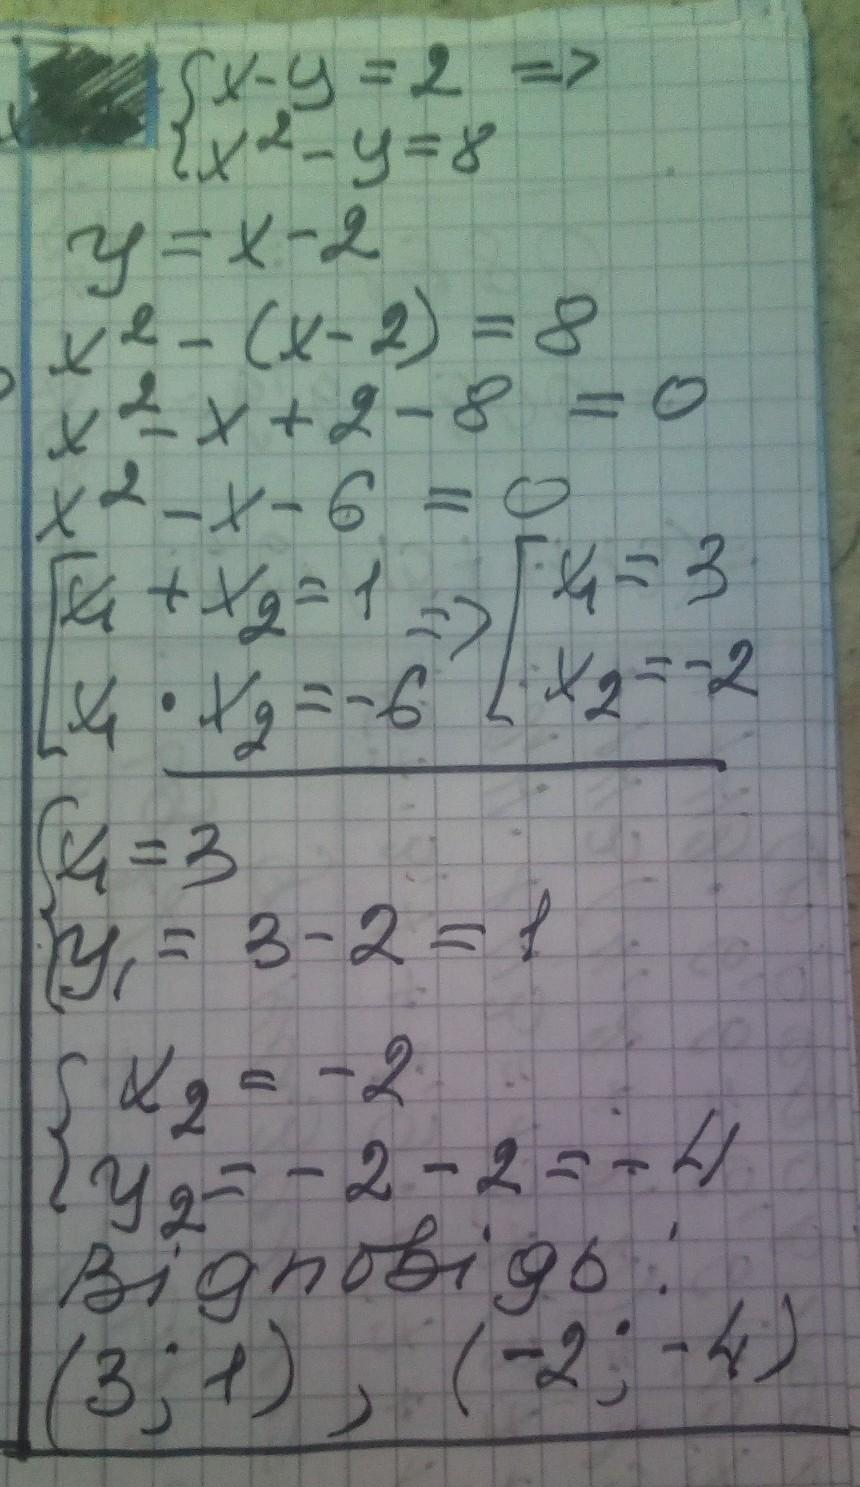 {x-y=2 =>
{x²-y=8
y=x-2
x²-(x-2)=8
x²-x+2-8=0
x²-x-6=0
[x₁+x₂=1 => [x₁=3
[x₁·x₂=-6 [x₂=-2
{x₁=3
{y₁=3-2=1
{x₂=-2
{y₂=-2-2=-4
Відповідь:
(3;1), (-2;-4)